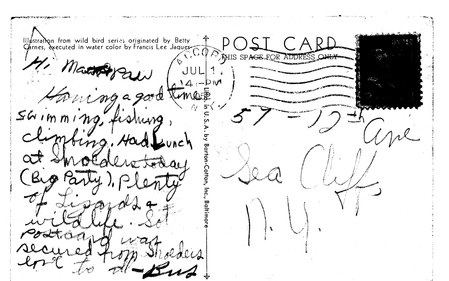 Illustration from wild bird series originated by Betty
Carnes, executed in water color by Francis Lee Jaques
Hi Ma Paw
Having a good time
swimming, fishing,
climbing. Had Lunch
at Smolders today
(Big Party). Plenty
of Lizards &
wildlife.
Postcard was
secured from Smolders
love to all - Bus
Litho in U.S.A. by Barton-Cotton, Inc. Baltimore
POST CARD
THIS SPACE FOR ADDRESS ONLY
JUL 1
PM
57 - 12th Ave
Sea Cliff,
N.Y.